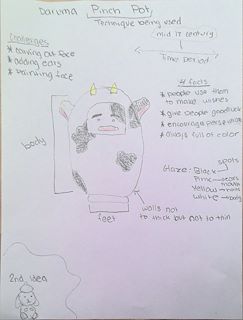 Daruma Pinch Pot
Technique being used
mid 17 century
Time period
Challenges
* carving out face
* adding ears
* painting face
# facts
* people use them
to make wishes
* give people goodluck
* encourage
* always full of color
spots
Glaze - Black
Pink - ears
mouth
Yellow - horns
White - body
body
feet
walls not
to thick but not to thin
2nd idea